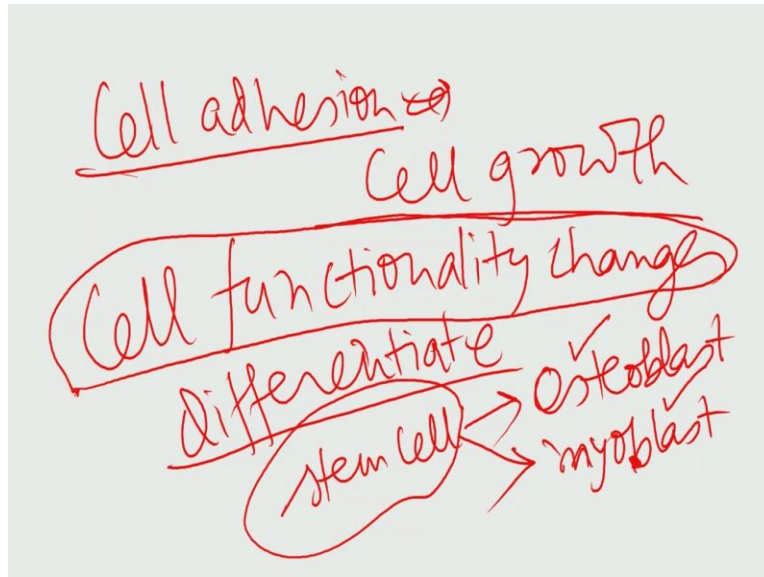 Cell adhesion →
Cell growth
Cell functionality changes
differentiate
stem cell → Osteoblast
→ myoblast